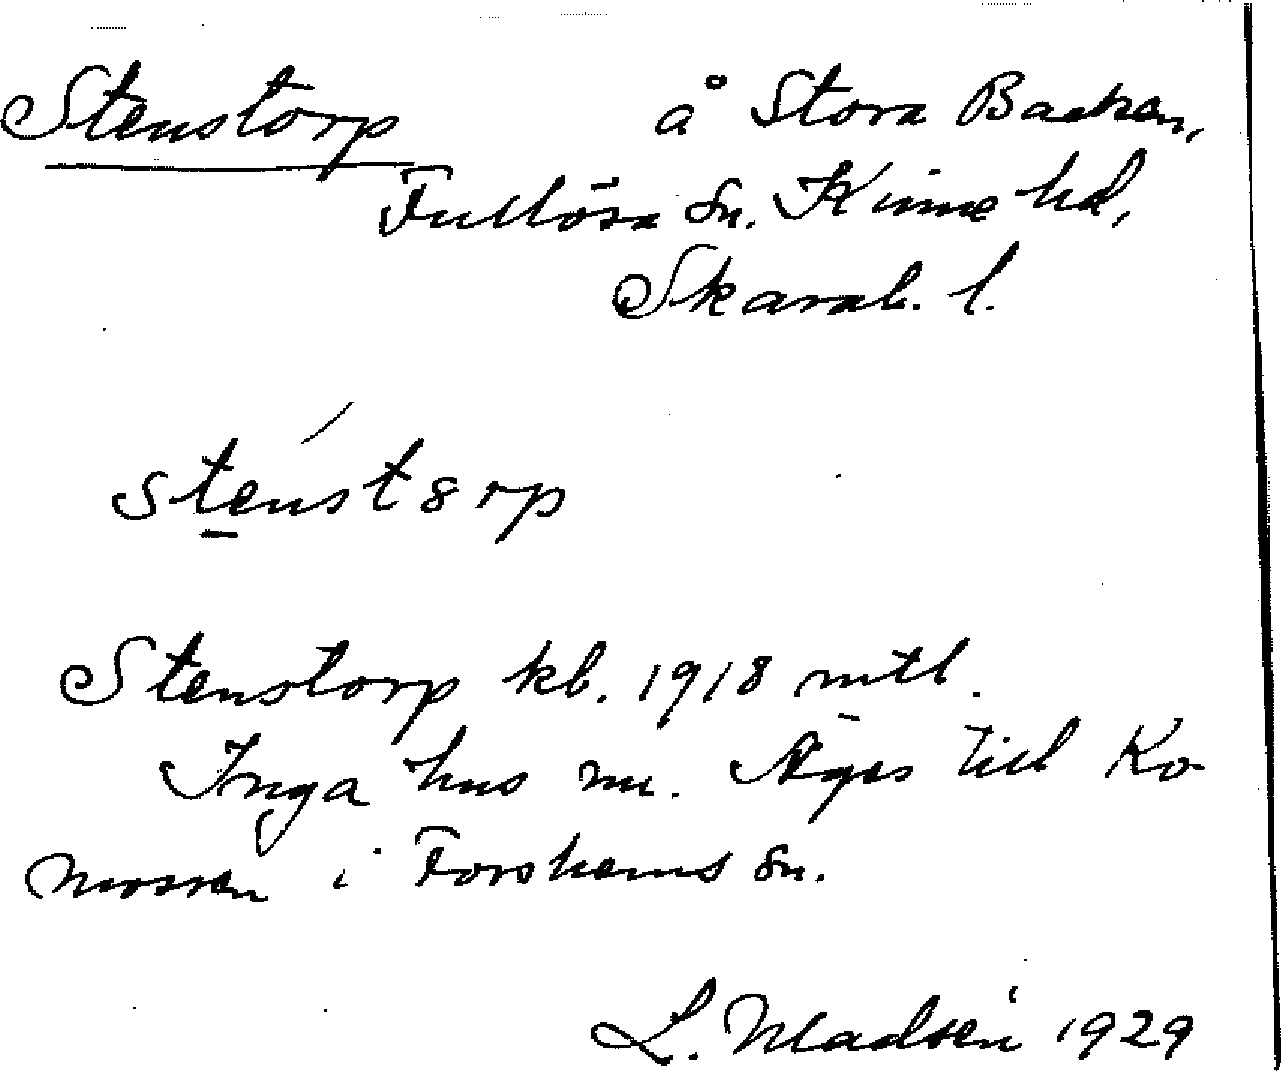 Stenstorp å Stora Backen,
Fullösa sn. Kinne hd,
Skarab. l.
stenst8rp
Stenstorp kb. 1918 mtl.
Inga hus nu. Äges till Ko
mossen i Forshems sn.
L. Madsén 1929